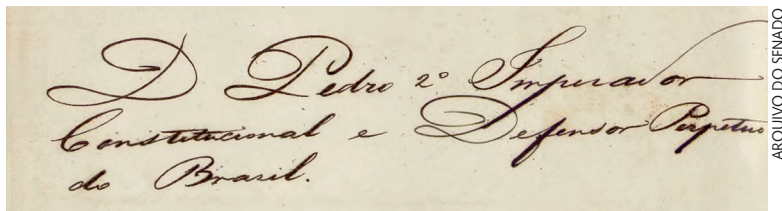 D Pedro 2º Imperador
Constitucional e Defensor Perpetuo
do Brasil.
ARQUIVO DO SENADO